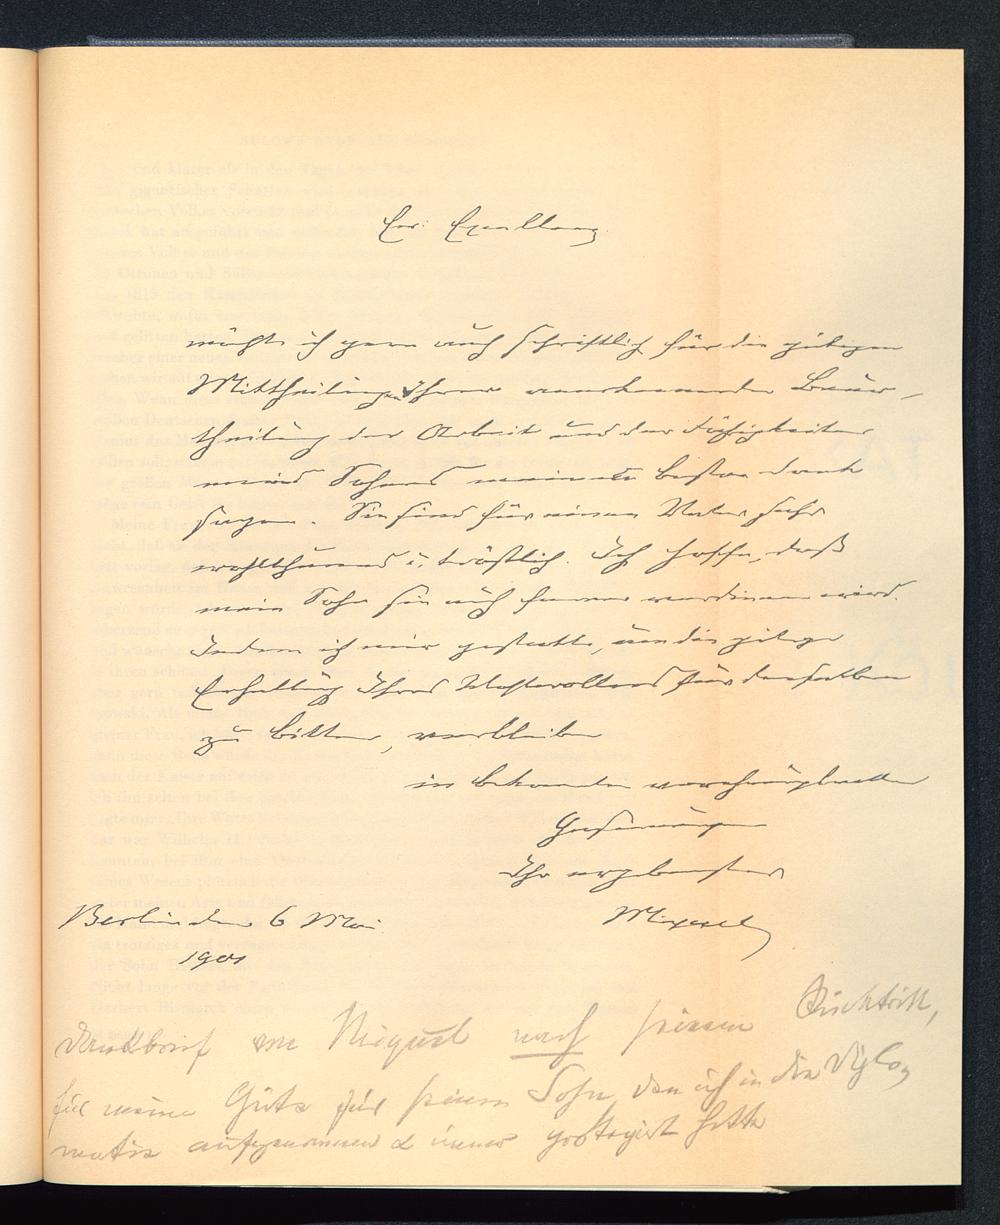 Ew: Excellenz
möchte ich gern auch schriftlich für die gütigen
Mittheilungen Ihrer anerkennenden Beur-
theilung der Arbeit und der Fähigkeiten
meines Sohnes meinen besten Dank
sagen. Sie sind für einen Vater sehr
wohlthuend u. tröstlich. Ich hoffe, daß
mein Sohn sie auch ferner verdienen wird.
Indem ich mir gestatte, um die gütige
Erhaltung Ihres Wohlwollens für denselben
zu bitten, verbleibe
in bekannter
Gesinnung
Ihr ergebenster
Miquel
Berlin den 6 Mai
1901
Dankbrief von Miquel nach seinem Rücktritt,
für meine Güte für seinen Sohn, den ich in die Diplo-
matie aufgenommen & immer protegirt hatte